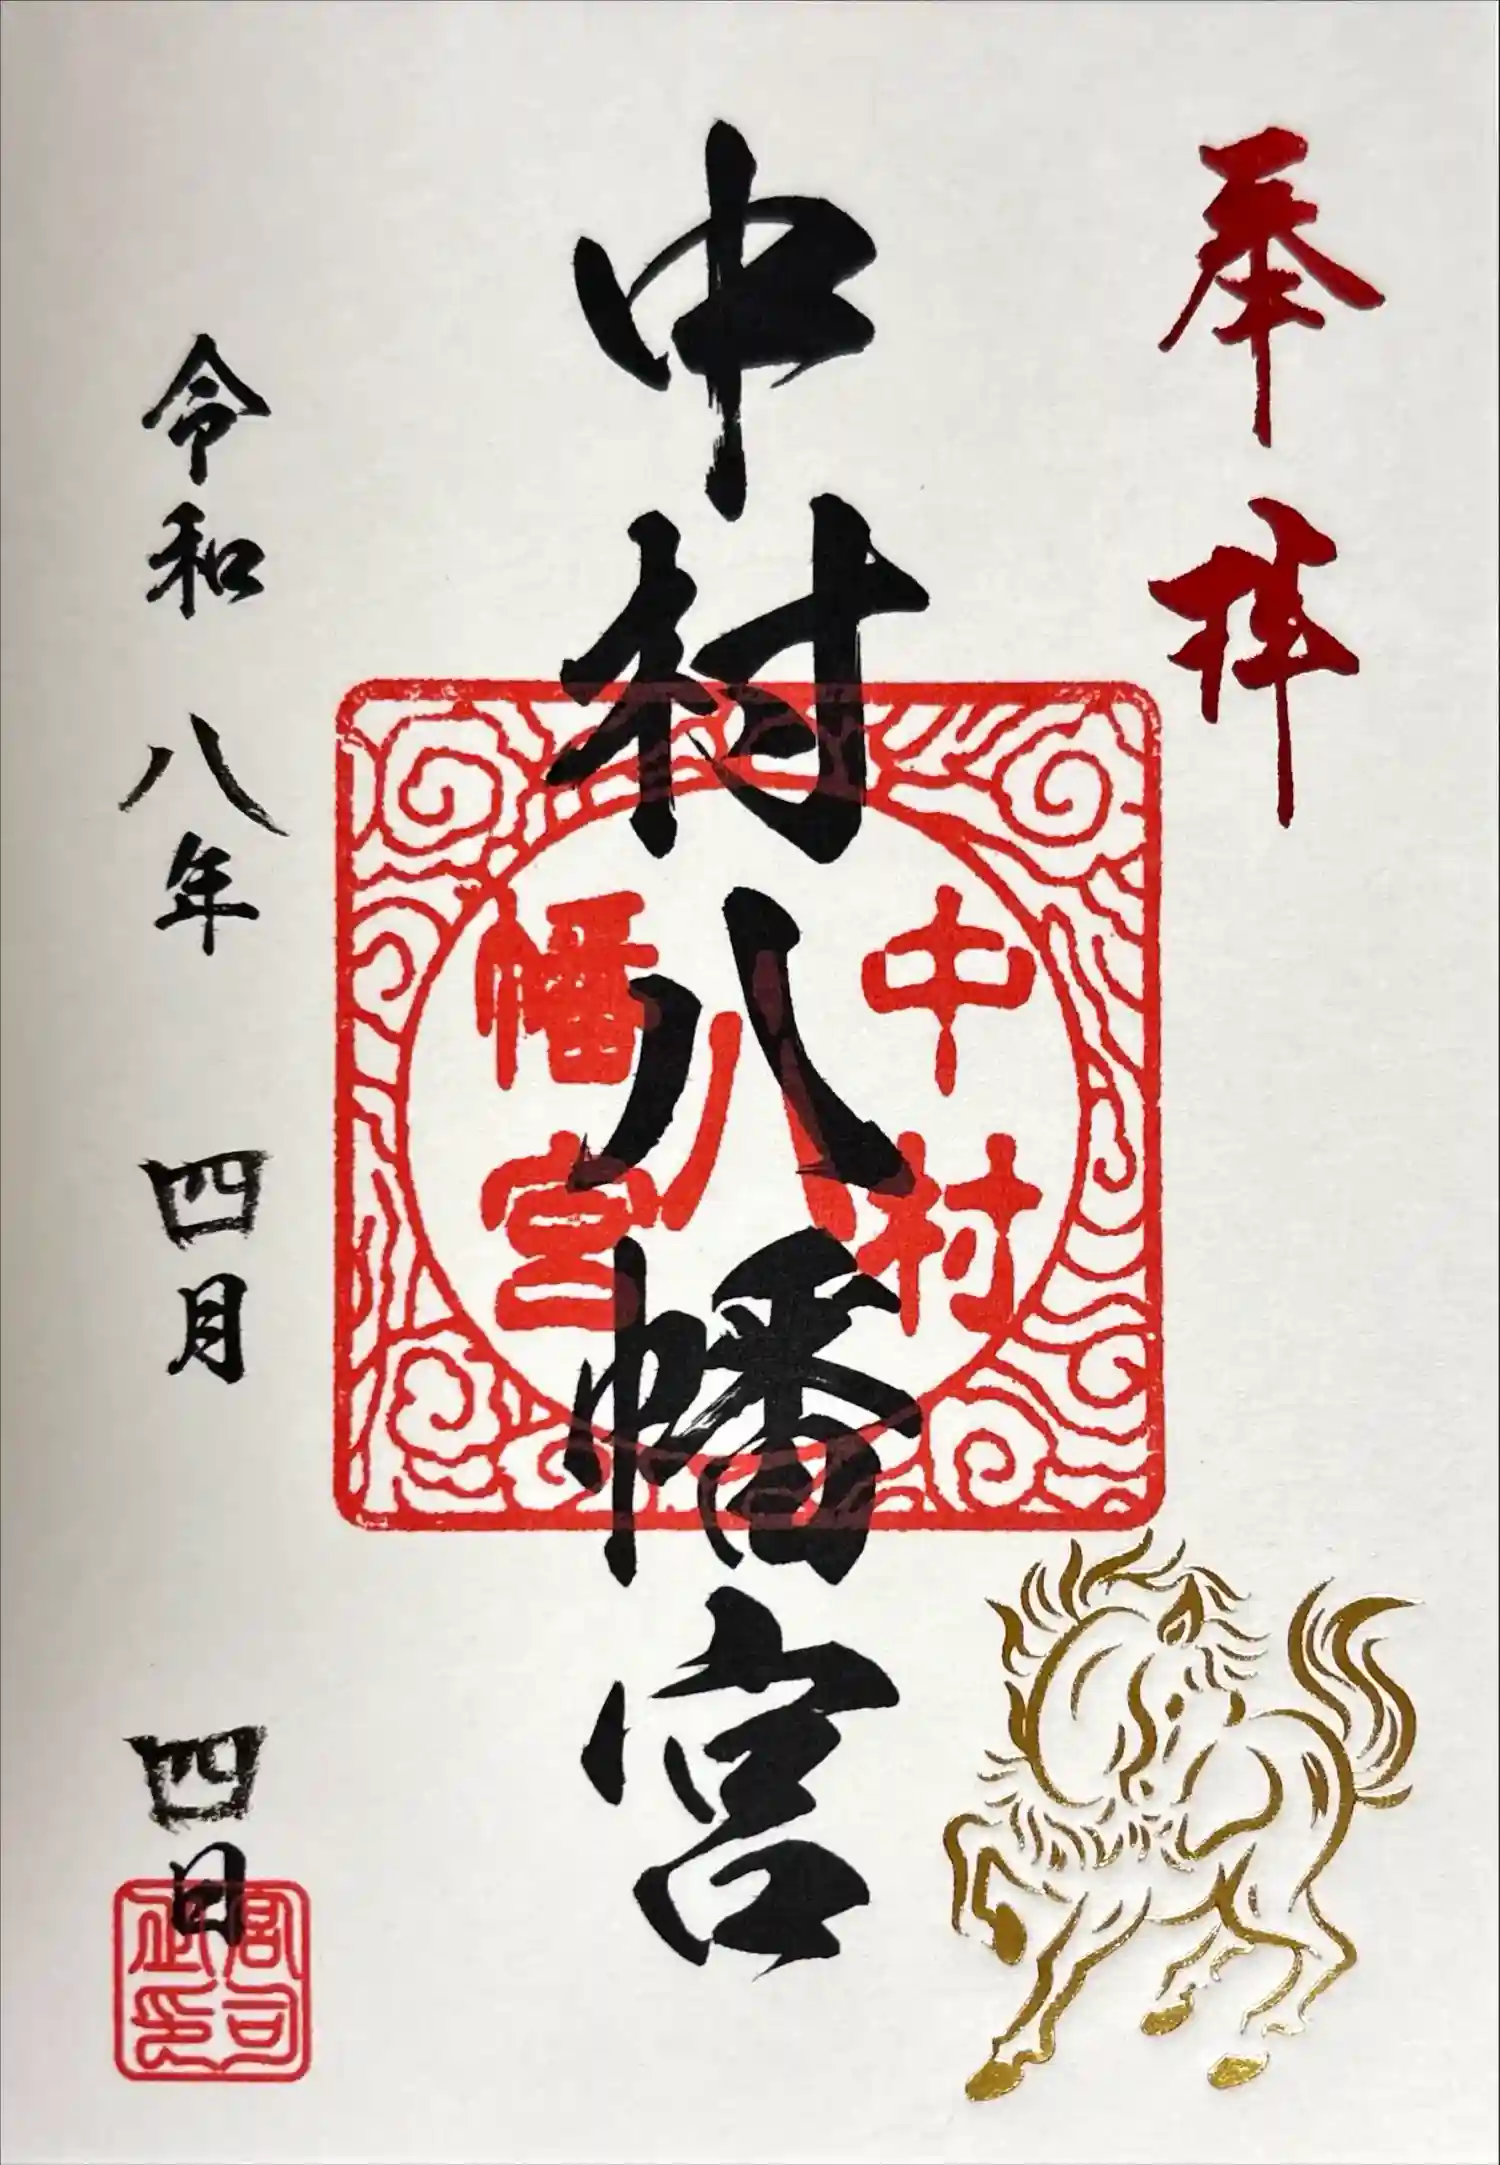 奉拝
中村八幡宮
中村
八
幡宮
令和八年 四月 四日
宮司
之印